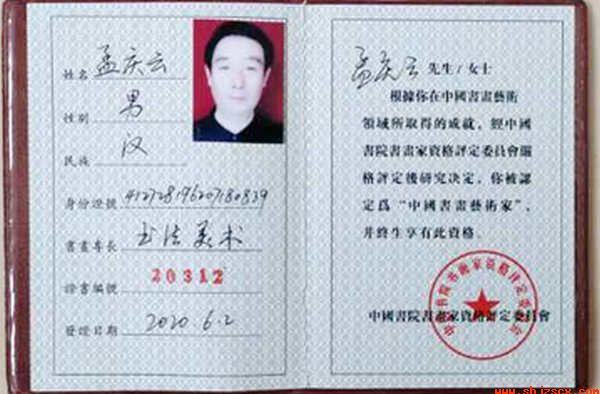 姓名 孟庆云
性别 男
民族 汉
身份證號 412728196207180839
書畫專長 书法美术
證書編號 20312
發證日期 2020.6.2
孟庆云 先生/女士
根據你在中國書畫藝術
領域所取得的成就，經中國
書院書畫家資格評定委員會嚴
格評定後研究決定，你被認
定爲“中國書畫藝術家”，
并終生享有此資格。
中國書院書畫家資格評定委員會
www.shjzscx.com